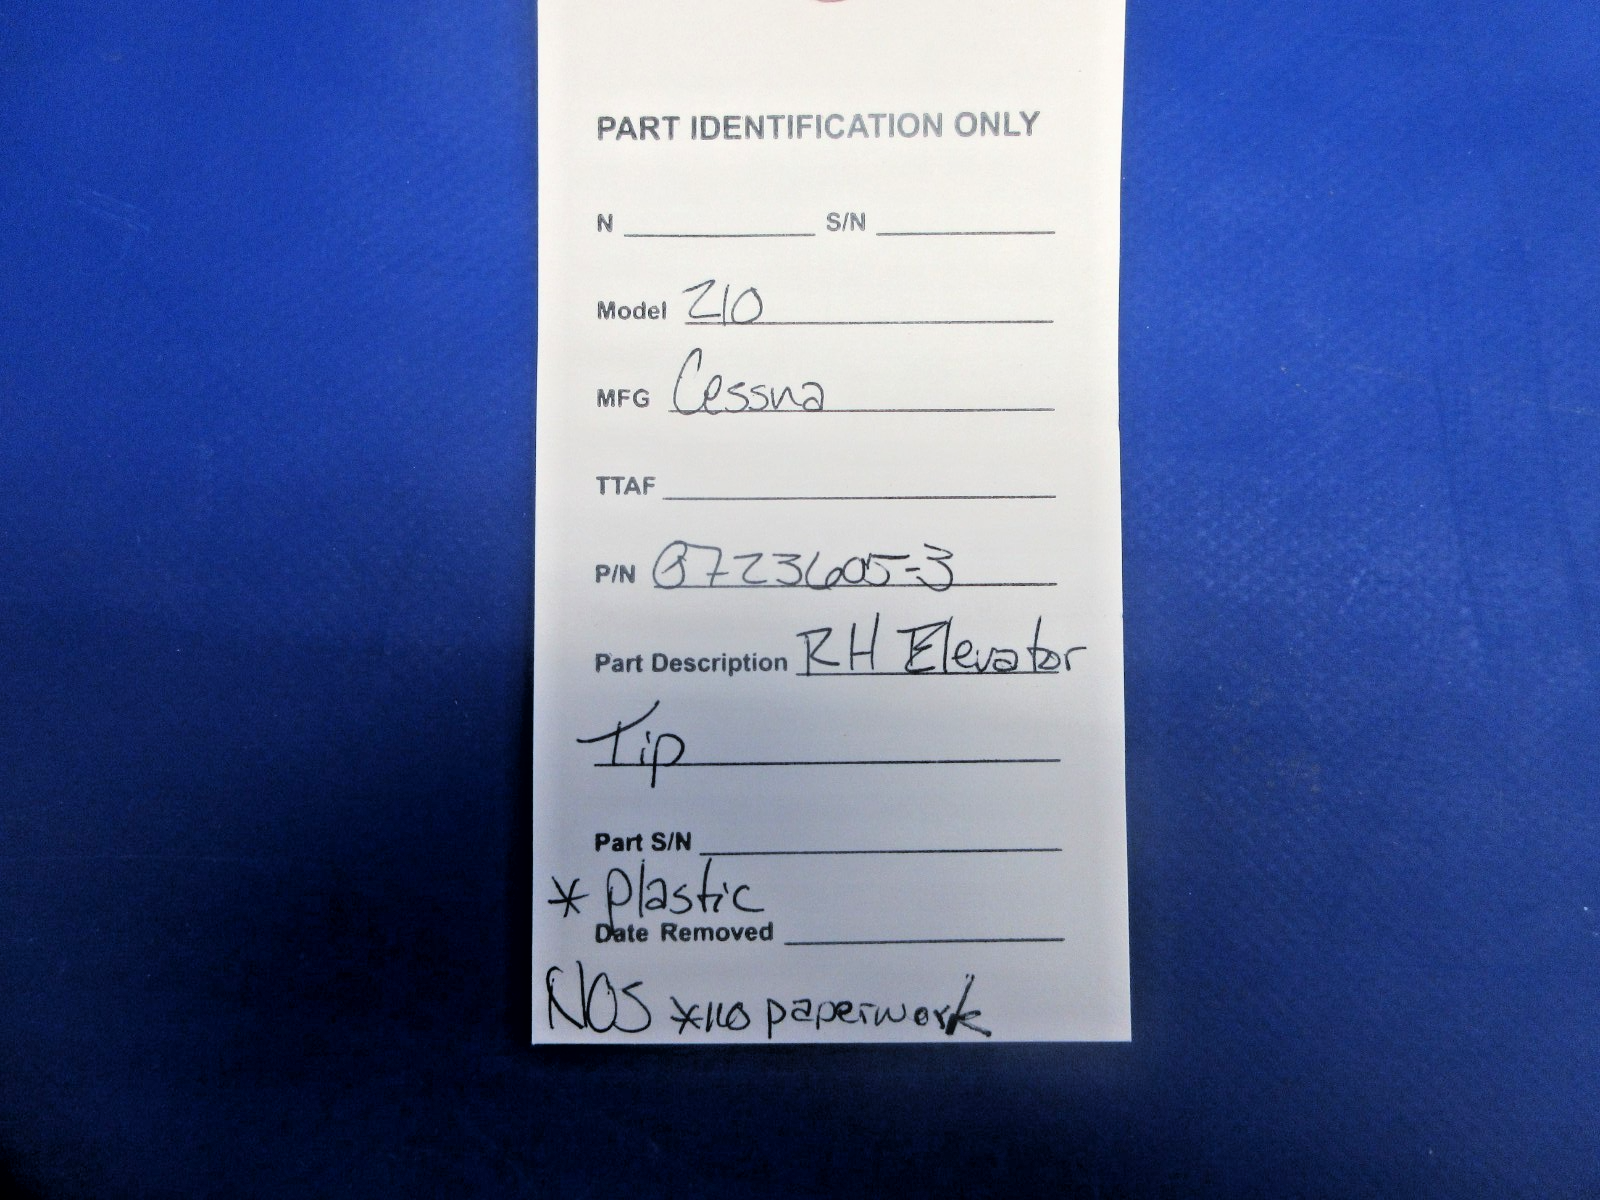 PART IDENTIFICATION ONLY
N S/N
Model 210
MFG Cessna
TTAF
P/N 0723605-3
Part Description RH Elevator
Tip
Part S/N
* plastic
Date Removed
NOS *no paperwork